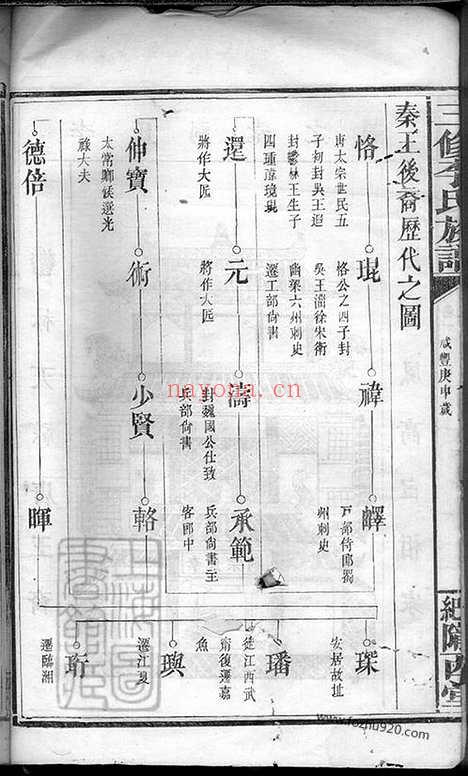 三修李氏族譜
咸豐庚申歲
秦王後裔歷代之圖
恪
唐太宗世民五
子初封吳王追
封鬱林王生子
四瑾瑋境琨
琨
恪公之四子封
吳王淄徐宋衛
幽梁六州刺史
遷工部尚書
禕
嶧
戶部侍郎獨
州刺史
還
將作大匠
元
將作大匠
濤
封魏國公仕致
兵部尚書
承範
兵部尚書主
客郎中
仲寶
太常卿送選光
祿大夫
術
少賢
輅
德倍
暉
琛
宏居故址
璠
徒江西武
甯後遷嘉
魚
璵
遷江夏
珩
遷臨湘
nayona.cn
www.fozhu920.com